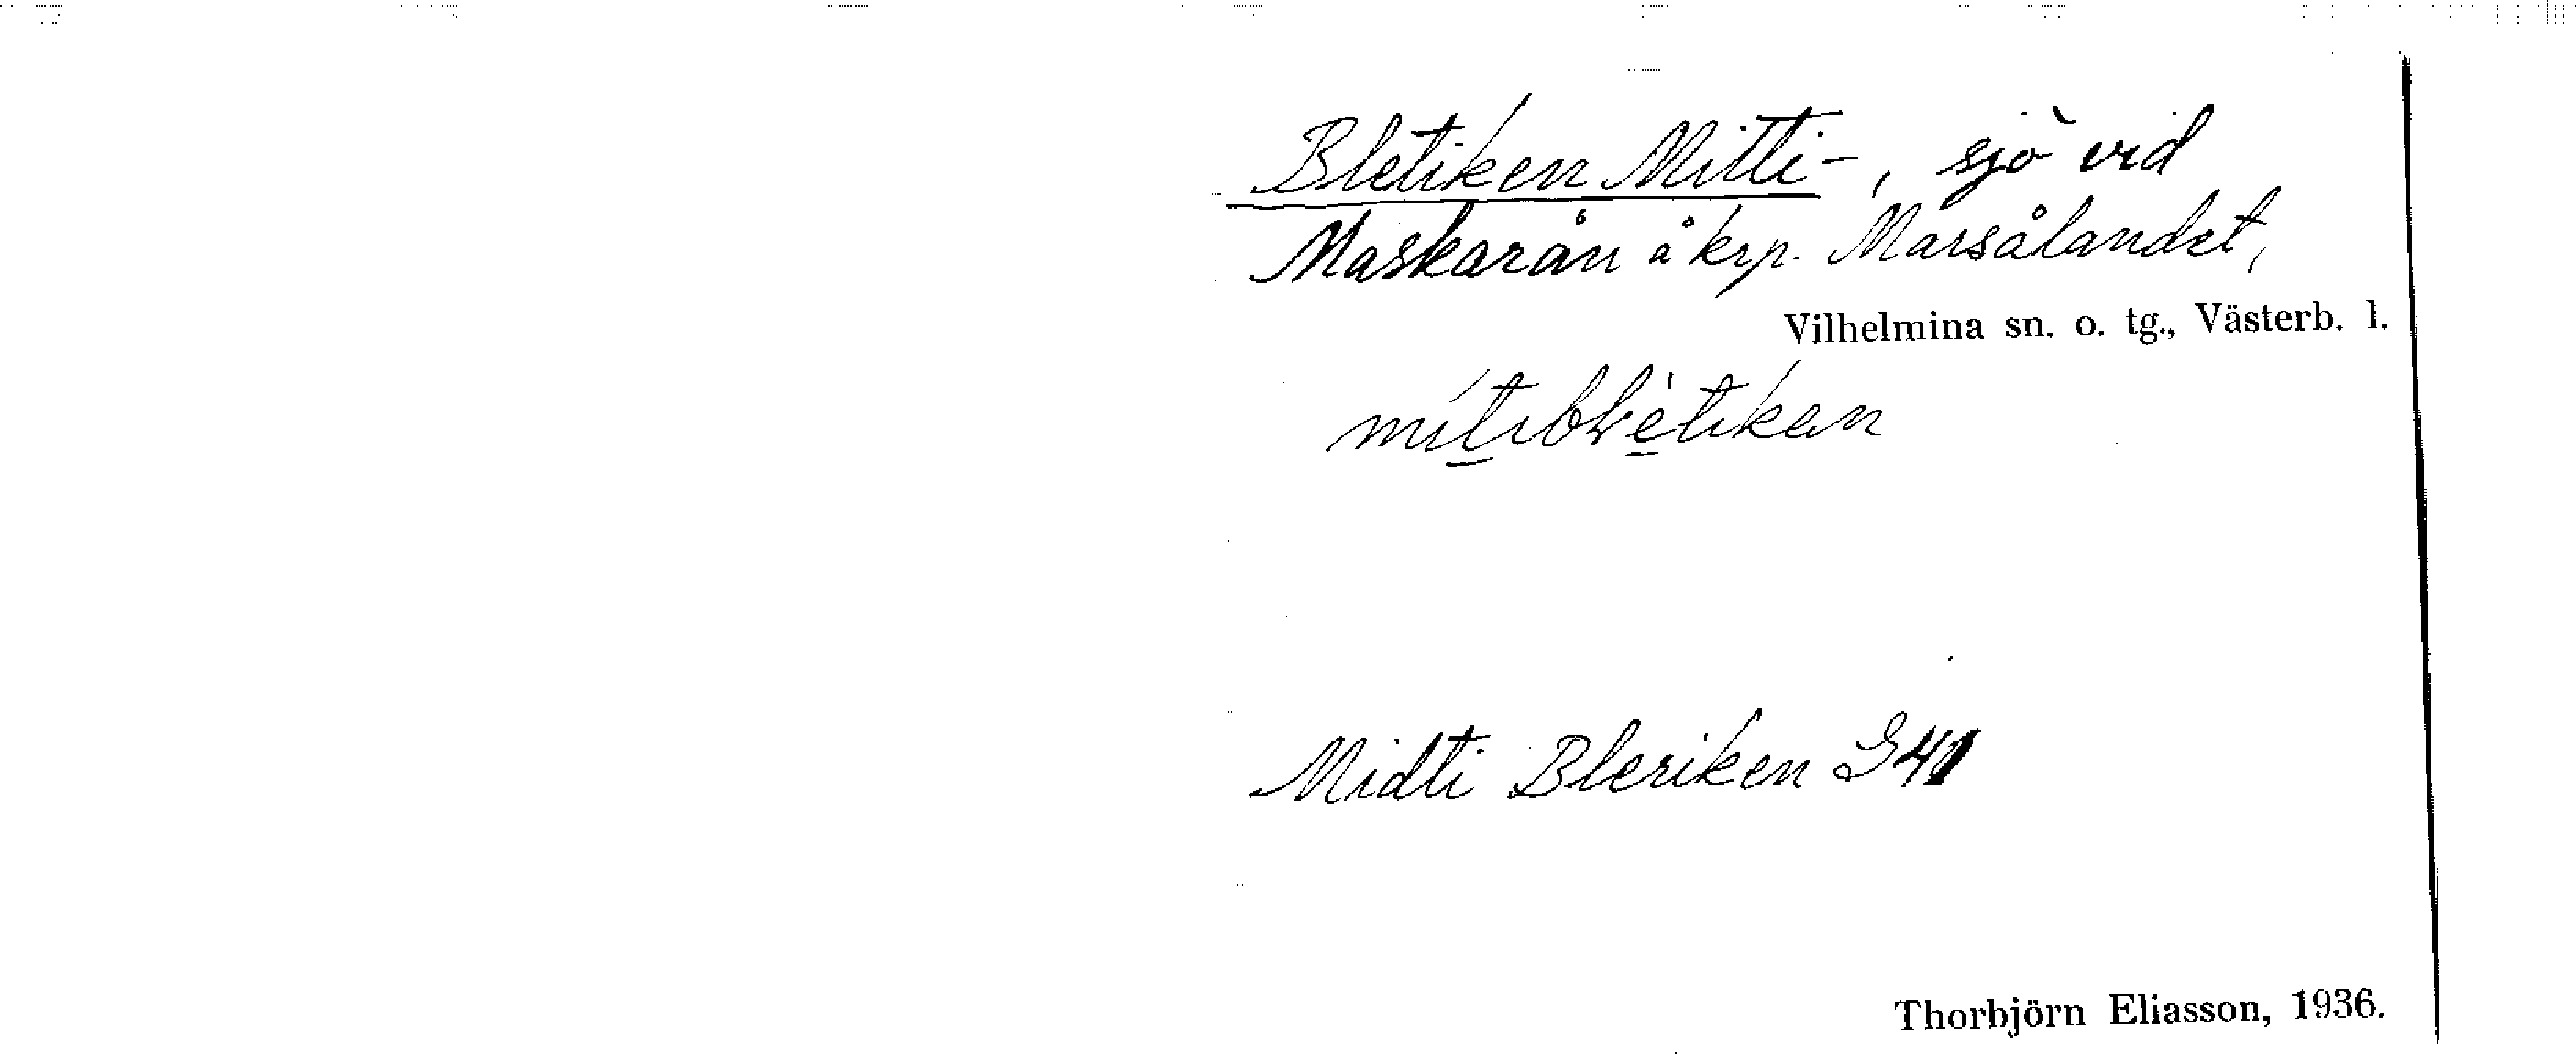 Bletiken Mitti-, sjö vid
Maskarån å krp. Marsålandet,
Vilhelmina sn. o. tg., Västerb. l.
Midti Bleriken G41
Thorbjörn Eliasson, 1936.